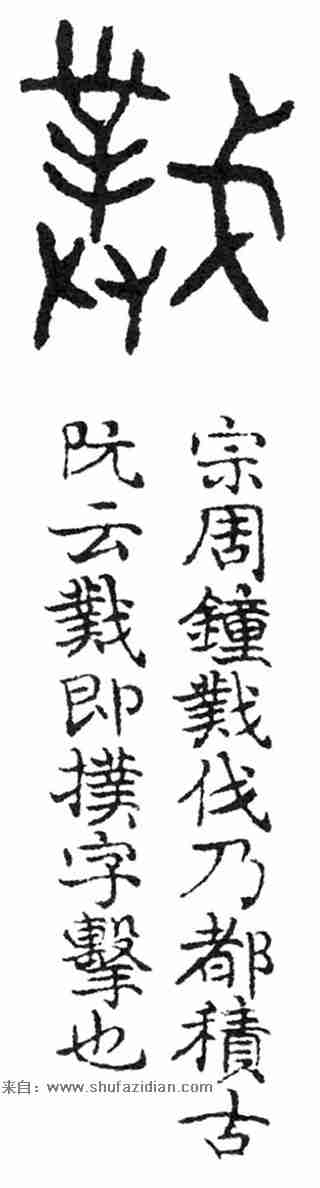 宗周鐘㪤伐乃都積古
阮云㪤即撲字擊也
来自：www.shufazidian.com